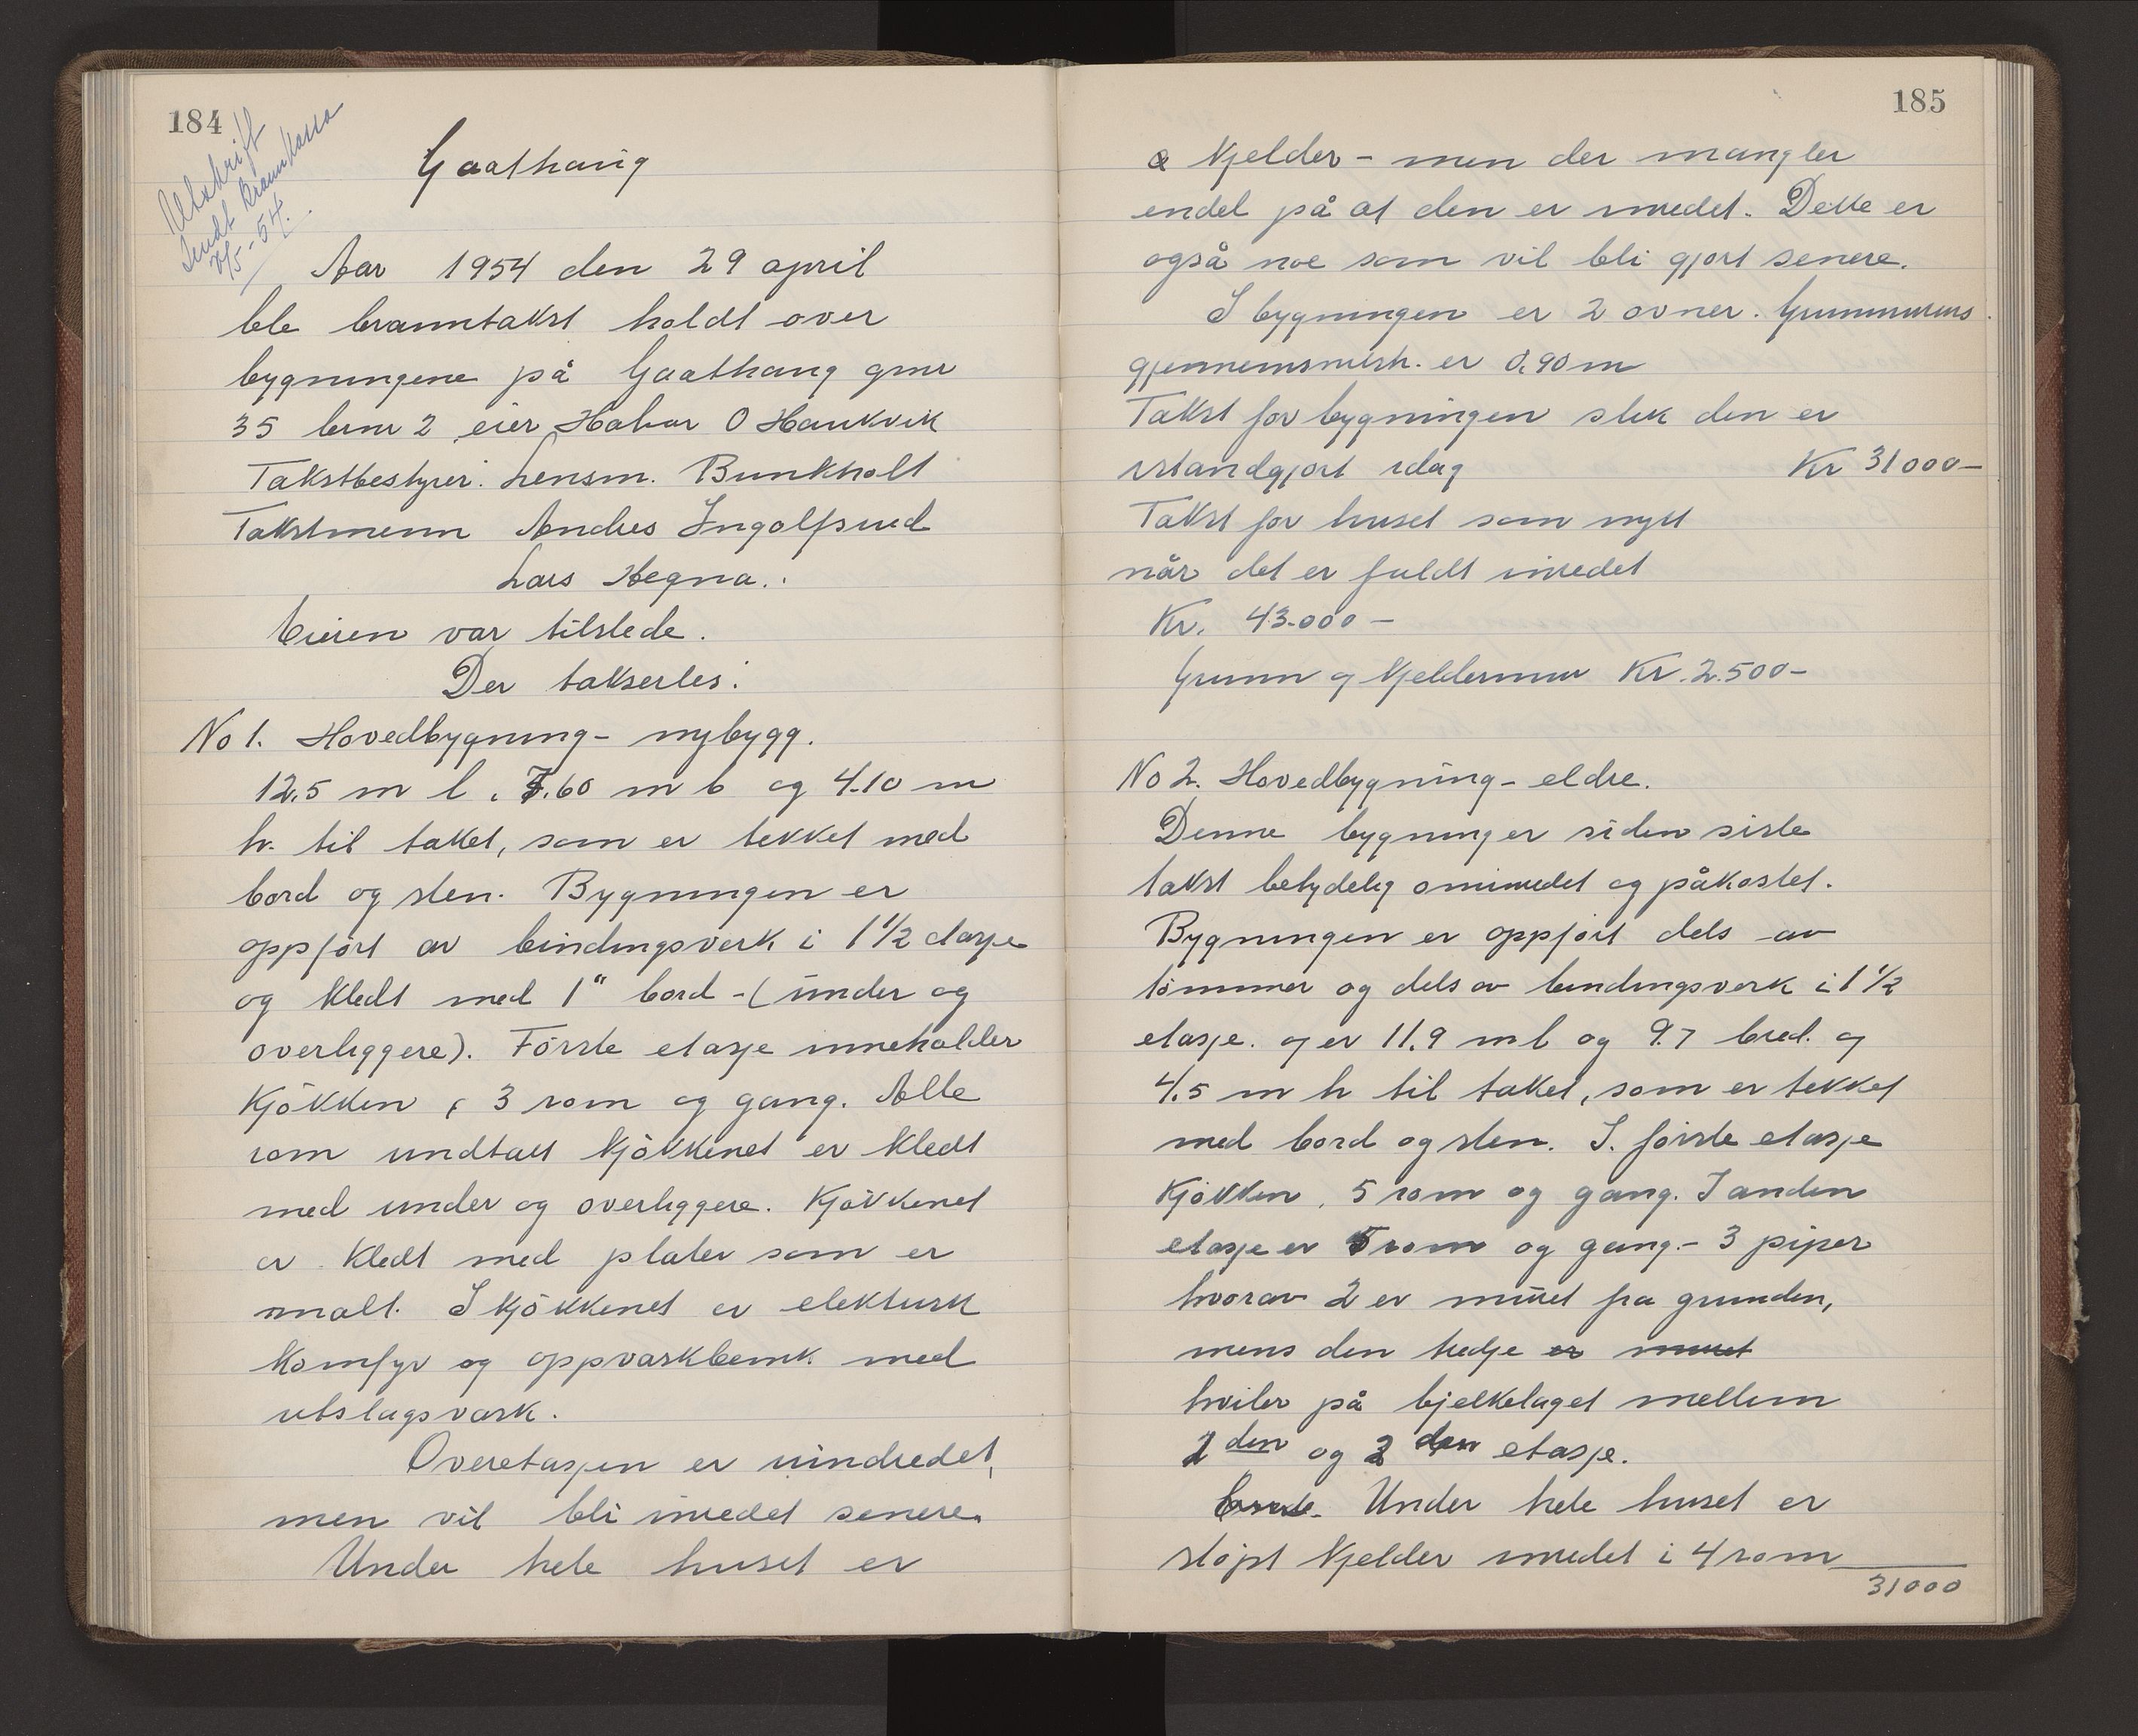 184
Utskrift
sendt Brannkassa
7/5-54.
Gaathaug
Aar 1954 den 29 april
ble branntakst holdt over
bygningene på Gaathaug gnr
35 brnr 2 eier Halvor O Haukvik
Takstbestyrer: Lensm. Bunkholt
Takstmenn Andres Ingolfsrud
Lars Hegna.
Eieren var tilstede.
Der takserles:
No 1. Hovedbygning - nybygg.
12.5 m l. 7.60 m b og 4.10 m
h. til taket, som er tekket med
bord og sten. Bygningen er
oppført av bindingsverk i 1 1/2 etasje
og kledt med 1" bord - (under og
overliggere). Første etasje inneholder
Kjøkken, 3 rom og gang. Alle
rom undtatt kjøkkenet er kledt
med under og overliggere. Kjøkkenet
er kledt med plater som er
malt. I kjøkkenet er elektrisk
komfyr og oppvaskbenk med
utslagsvask.
Overetasjen er uindredet,
men vil bli inredet senere.
Under hele huset er
185
Kjelder - men der mangler
endel på at den er inredet. Dette er
også noe som vil bli gjort senere.
I bygningen er 2 ovner. Grunnmurens
gjennemsnitsh. er 0.90 m
Takst for bygningen slik den er
istandgjort idag Kr 31000-
Takst for huset som nytt
når det er fuldt inredet
Kr. 43.000 -
Grunn og kjeldermur Kr. 2.500-
No 2. Hovedbygning - eldre.
Denne bygning er siden siste
takst betydelig ominredet og påkostet.
Bygningen er oppført dels av
tømmer og dels av bindingsverk i 1 1/2
etasje. og er 11.9 m l og 9.7 bred. og
4.5 m h til taket, som er tekket
med bord og sten. I. første etasje
Kjøkken, 5 rom og gang. I anden
etasje er 5 rom og gang. - 3 piper
hvorav 2 er muret fra grunden,
mens den tredje er muret
hviler på bjelkelaget mellem
1 den og 2 den etasje.
Under hele huset er
støpt Kjelder inredet i 4 rom
31000